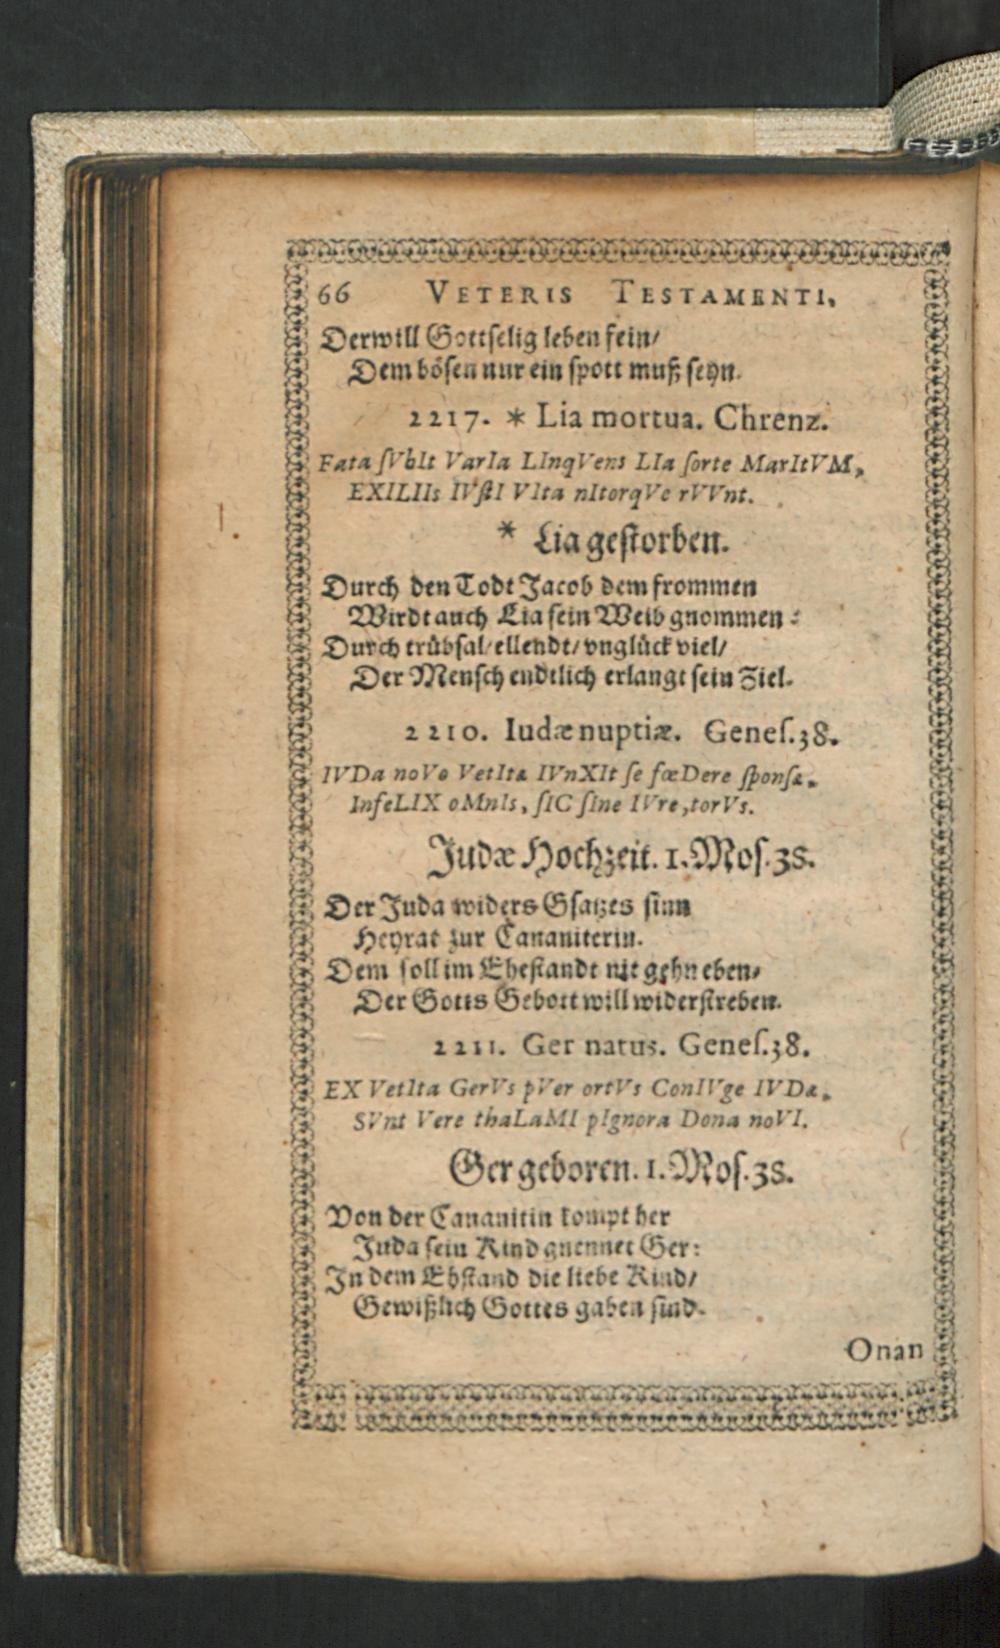 66 VETERIS TESTAMENTI.
Derwill Gottselig leben fein/
Dem bösen nur ein spott muß seyn.
2217. * Lia mortua. Chrenz.
Fata ſVbIt VarIa LInqVens LIa ſorte MarItVM,
EXILIIs IVſtI VIta nItorqVe rVVnt.
* Lia gestorben.
Durch den Todt Jacob dem frommen
Wirdt auch Lia sein Weib gnommen:
Durch trübsal/ ellendt/ vnglück viel/
Der Mensch endtlich erlangt sein Ziel.
2210. Iudæ nuptiæ. Geneſ.38.
IVDa noVo VetItæ IVnXIt ſe fœDere ſponſæ,
InfeLIX oMnIs, ſIC ſIne IVre, torVs.
Judæ Hochzeit. 1. Mos. 38.
Der Juda widers Gsatzes sinn
Heyrat zur Cananiterin.
Dem soll im Ehestandt nit gehn eben/
Der Gotts Gebott will widerstreben.
2211. Ger natus. Geneſ.38.
EX VetIta GerVs pVer ortVs ConIVge IVDæ,
SVnt Vere thaLaMI pIgnora Dona noVI.
Ger geboren. 1. Mos. 38.
Von der Cananitin kompt her
Juda sein Kind gnennet Ger:
In dem Ehstand die liebe Kind/
Gewißlich Gottes gaben sind.
Onan